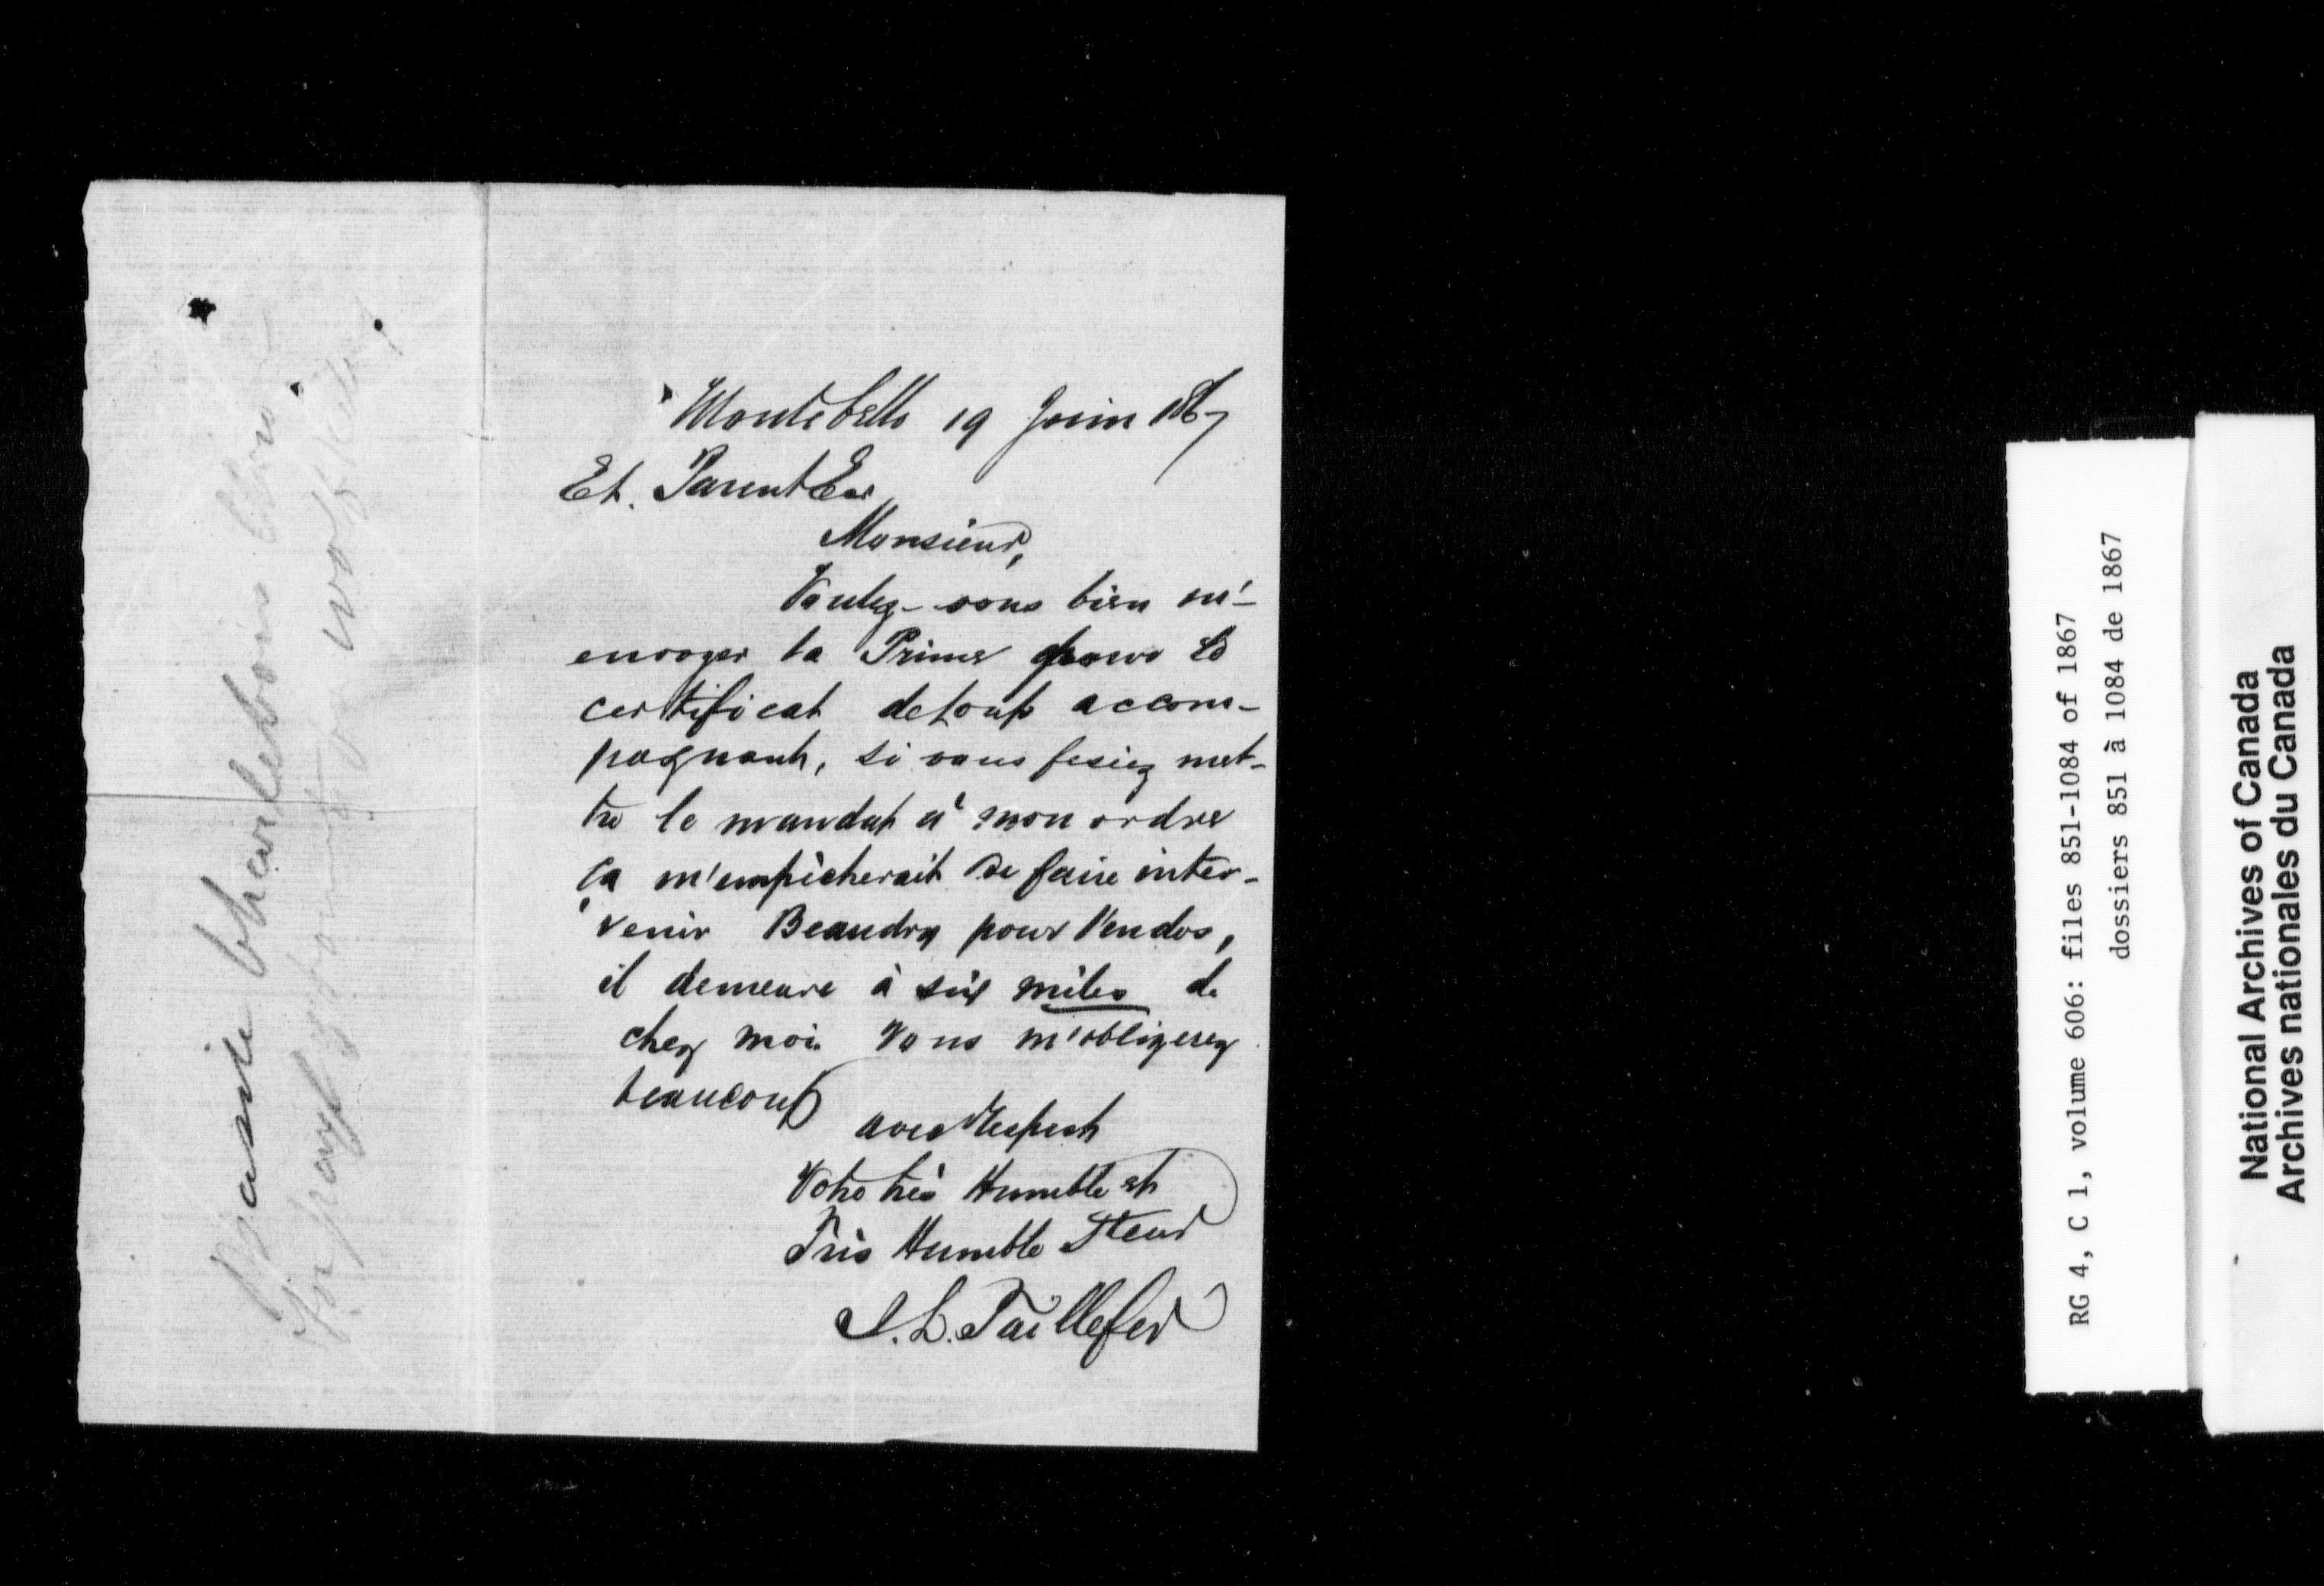 Montebello 19 Juin 1867
Et. Parent Esr
Monsieur,
Voulez-vous bien m'-
envoyer la Prime pour le
certificat de loup accom-
pagnant, si vous fesiez met-
tre le mandat à mon ordre
ça m'empêcherait de faire inter-
venir Beaudry pour l'endos,
il demeure à six miles de
chez moi. Vous m'obligerez
beaucoup
avec Respect
Votre très Humble et
Très Humble Steur
J. L. Taillefer
Charlebois
RG 4, C 1, volume 606: files 851-1084 of 1867
dossiers 851 à 1084 de 1867
National Archives of Canada
Archives nationales du Canada